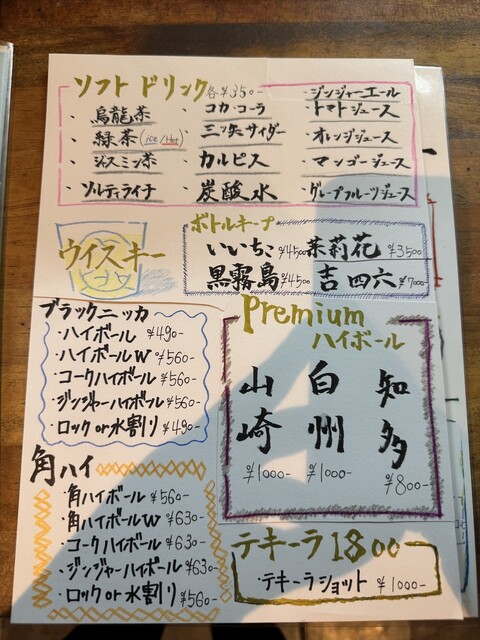 ソフトドリンク 各¥350-
・烏龍茶
・緑茶(ice/Hot)
・ジャスミン茶
・ソルティライチ
・コカ・コーラ
・三ツ矢サイダー
・カルピス
・炭酸水
・ジンジャーエール
・トマトジュース
・オレンジジュース
・マンゴージュース
・グレープフルーツジュース
ウイスキー
ボトルキープ
いいちこ ¥4500 茉莉花 ¥3500
黒霧島 ¥4500 吉四六 ¥7000-
ブラックニッカ
・ハイボール ¥490-
・ハイボールW ¥560-
・コークハイボール ¥560-
・ジンジャーハイボール ¥560-
・ロック or 水割り ¥490-
Premium
ハイボール
山崎 ¥1000-
白州 ¥1000-
知多 ¥800-
角ハイ
・角ハイボール ¥560-
・角ハイボールW ¥630-
・コークハイボール ¥630-
・ジンジャーハイボール ¥630-
・ロック or 水割り ¥560-
テキーラ1800
・テキーラショット ¥1000-